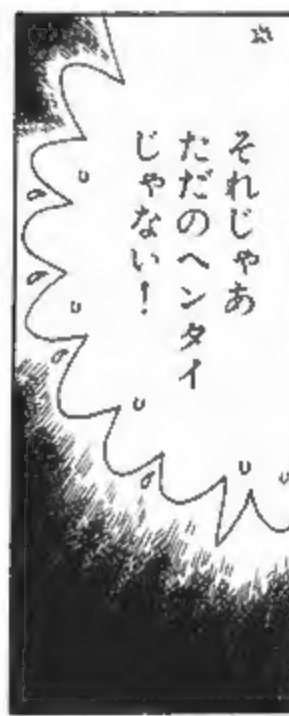 それじゃあ
ただのヘンタイ
じゃない！